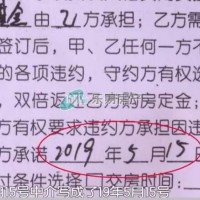 金 由 乙方承担；乙方需
签订后，甲、乙任何一方不
的各项违约，守约方有权选
，双倍返还乙方购房定金；
方有权要求违约方承担因违
方承诺 2019 年 5 月 15
过付条件选择 口交房时间：
15号中介写成了19年5月15号